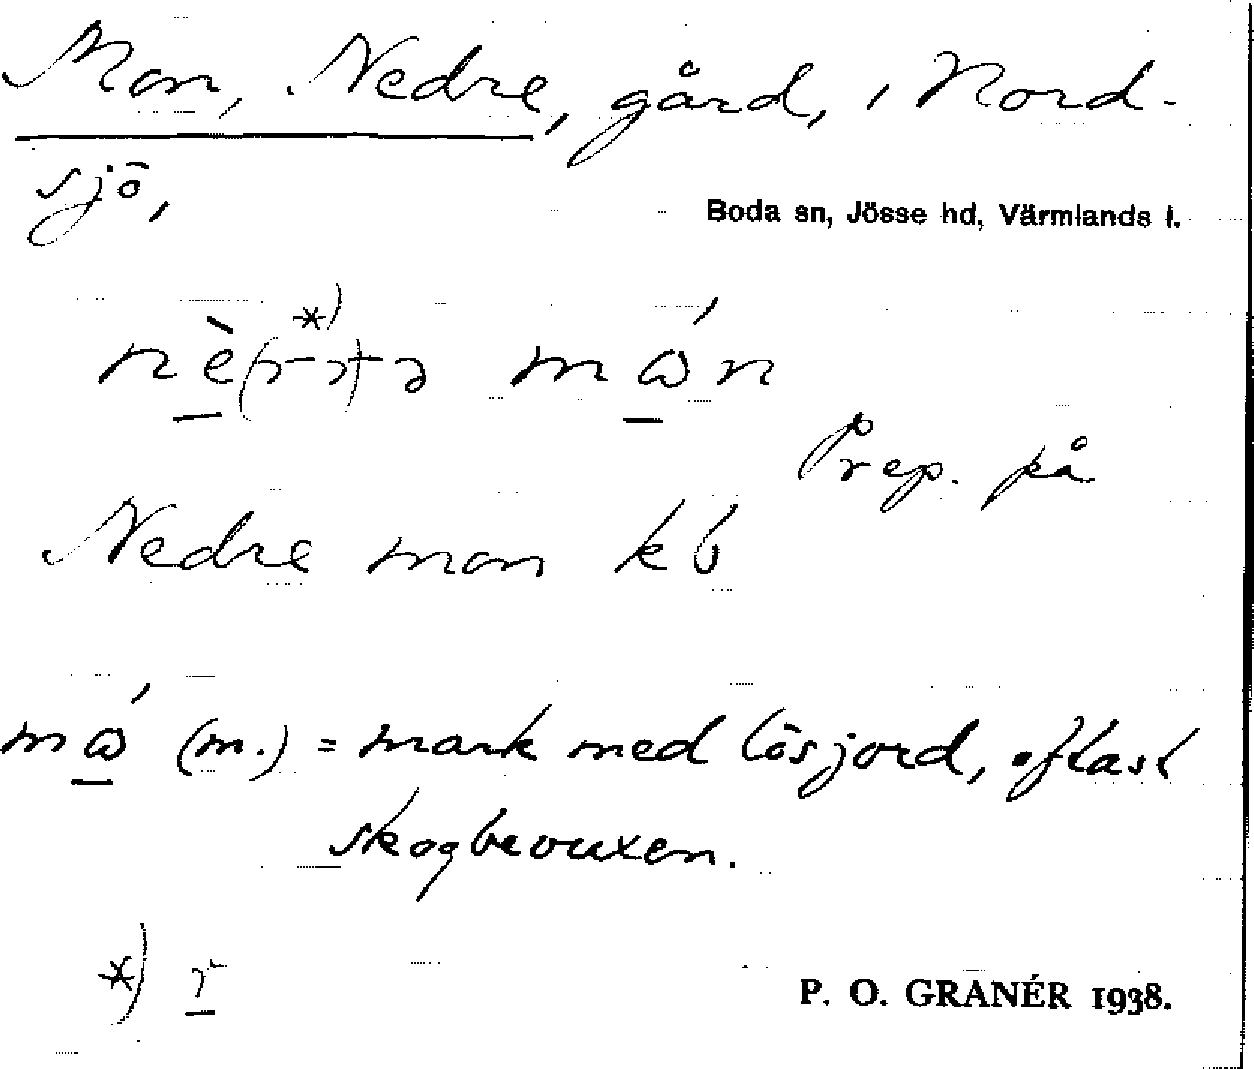 Mon, Nedre, gård, i Nord-
sjö,
Boda sn, Jösse hd, Värmlands l.
Prep. på
Nedre mon kb
(m.) = mark med lösjord, oftast
skogbevuxen.
*) r
P. O. GRANÉR 1938.